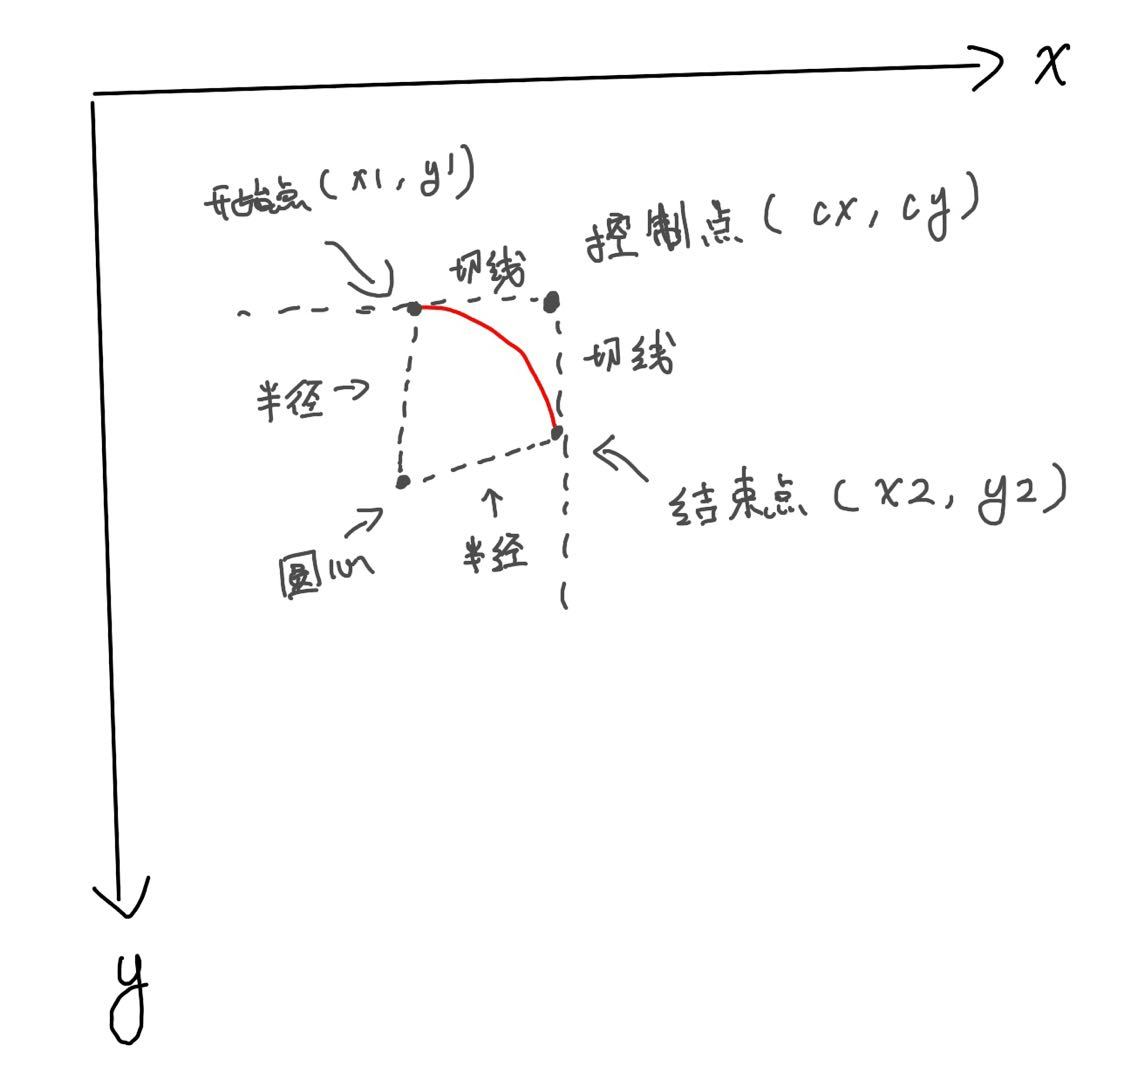 x
开始点(x1,y1)
控制点(cx,cy)
切线
切线
半径→
结束点(x2,y2)
圆心
半径
y